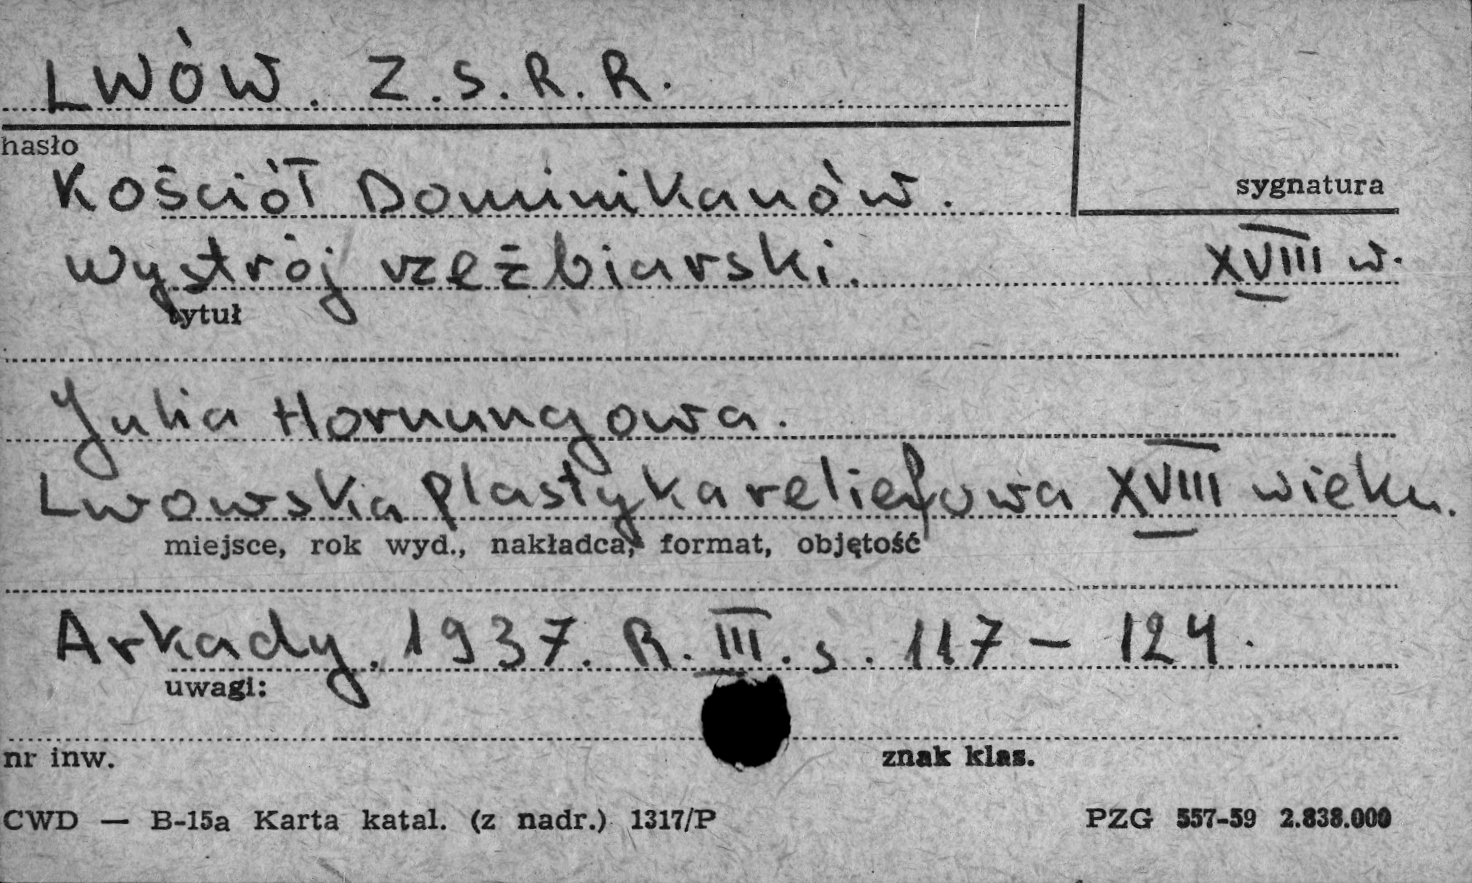 LWÓW. Z.S.R.R.
hasło
Kościół Dominikanów.
sygnatura
Wystrój rzeźbiarski. XVIII w.
tytuł
Julia Hornungowa.
Lwowska plastyka reliefowa XVIII wieku.
miejsce, rok wyd., nakładca, format, objętość
Arkady. 1937. R. III. s. 117 – 124.
uwagi:
nr inw. znak klas.
CWD — B-15a Karta katal. (z nadr.) 1317/P PZG 557-59 2.838.000